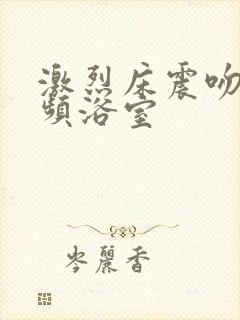 激烈床震吻
頻浴室
岑麗香